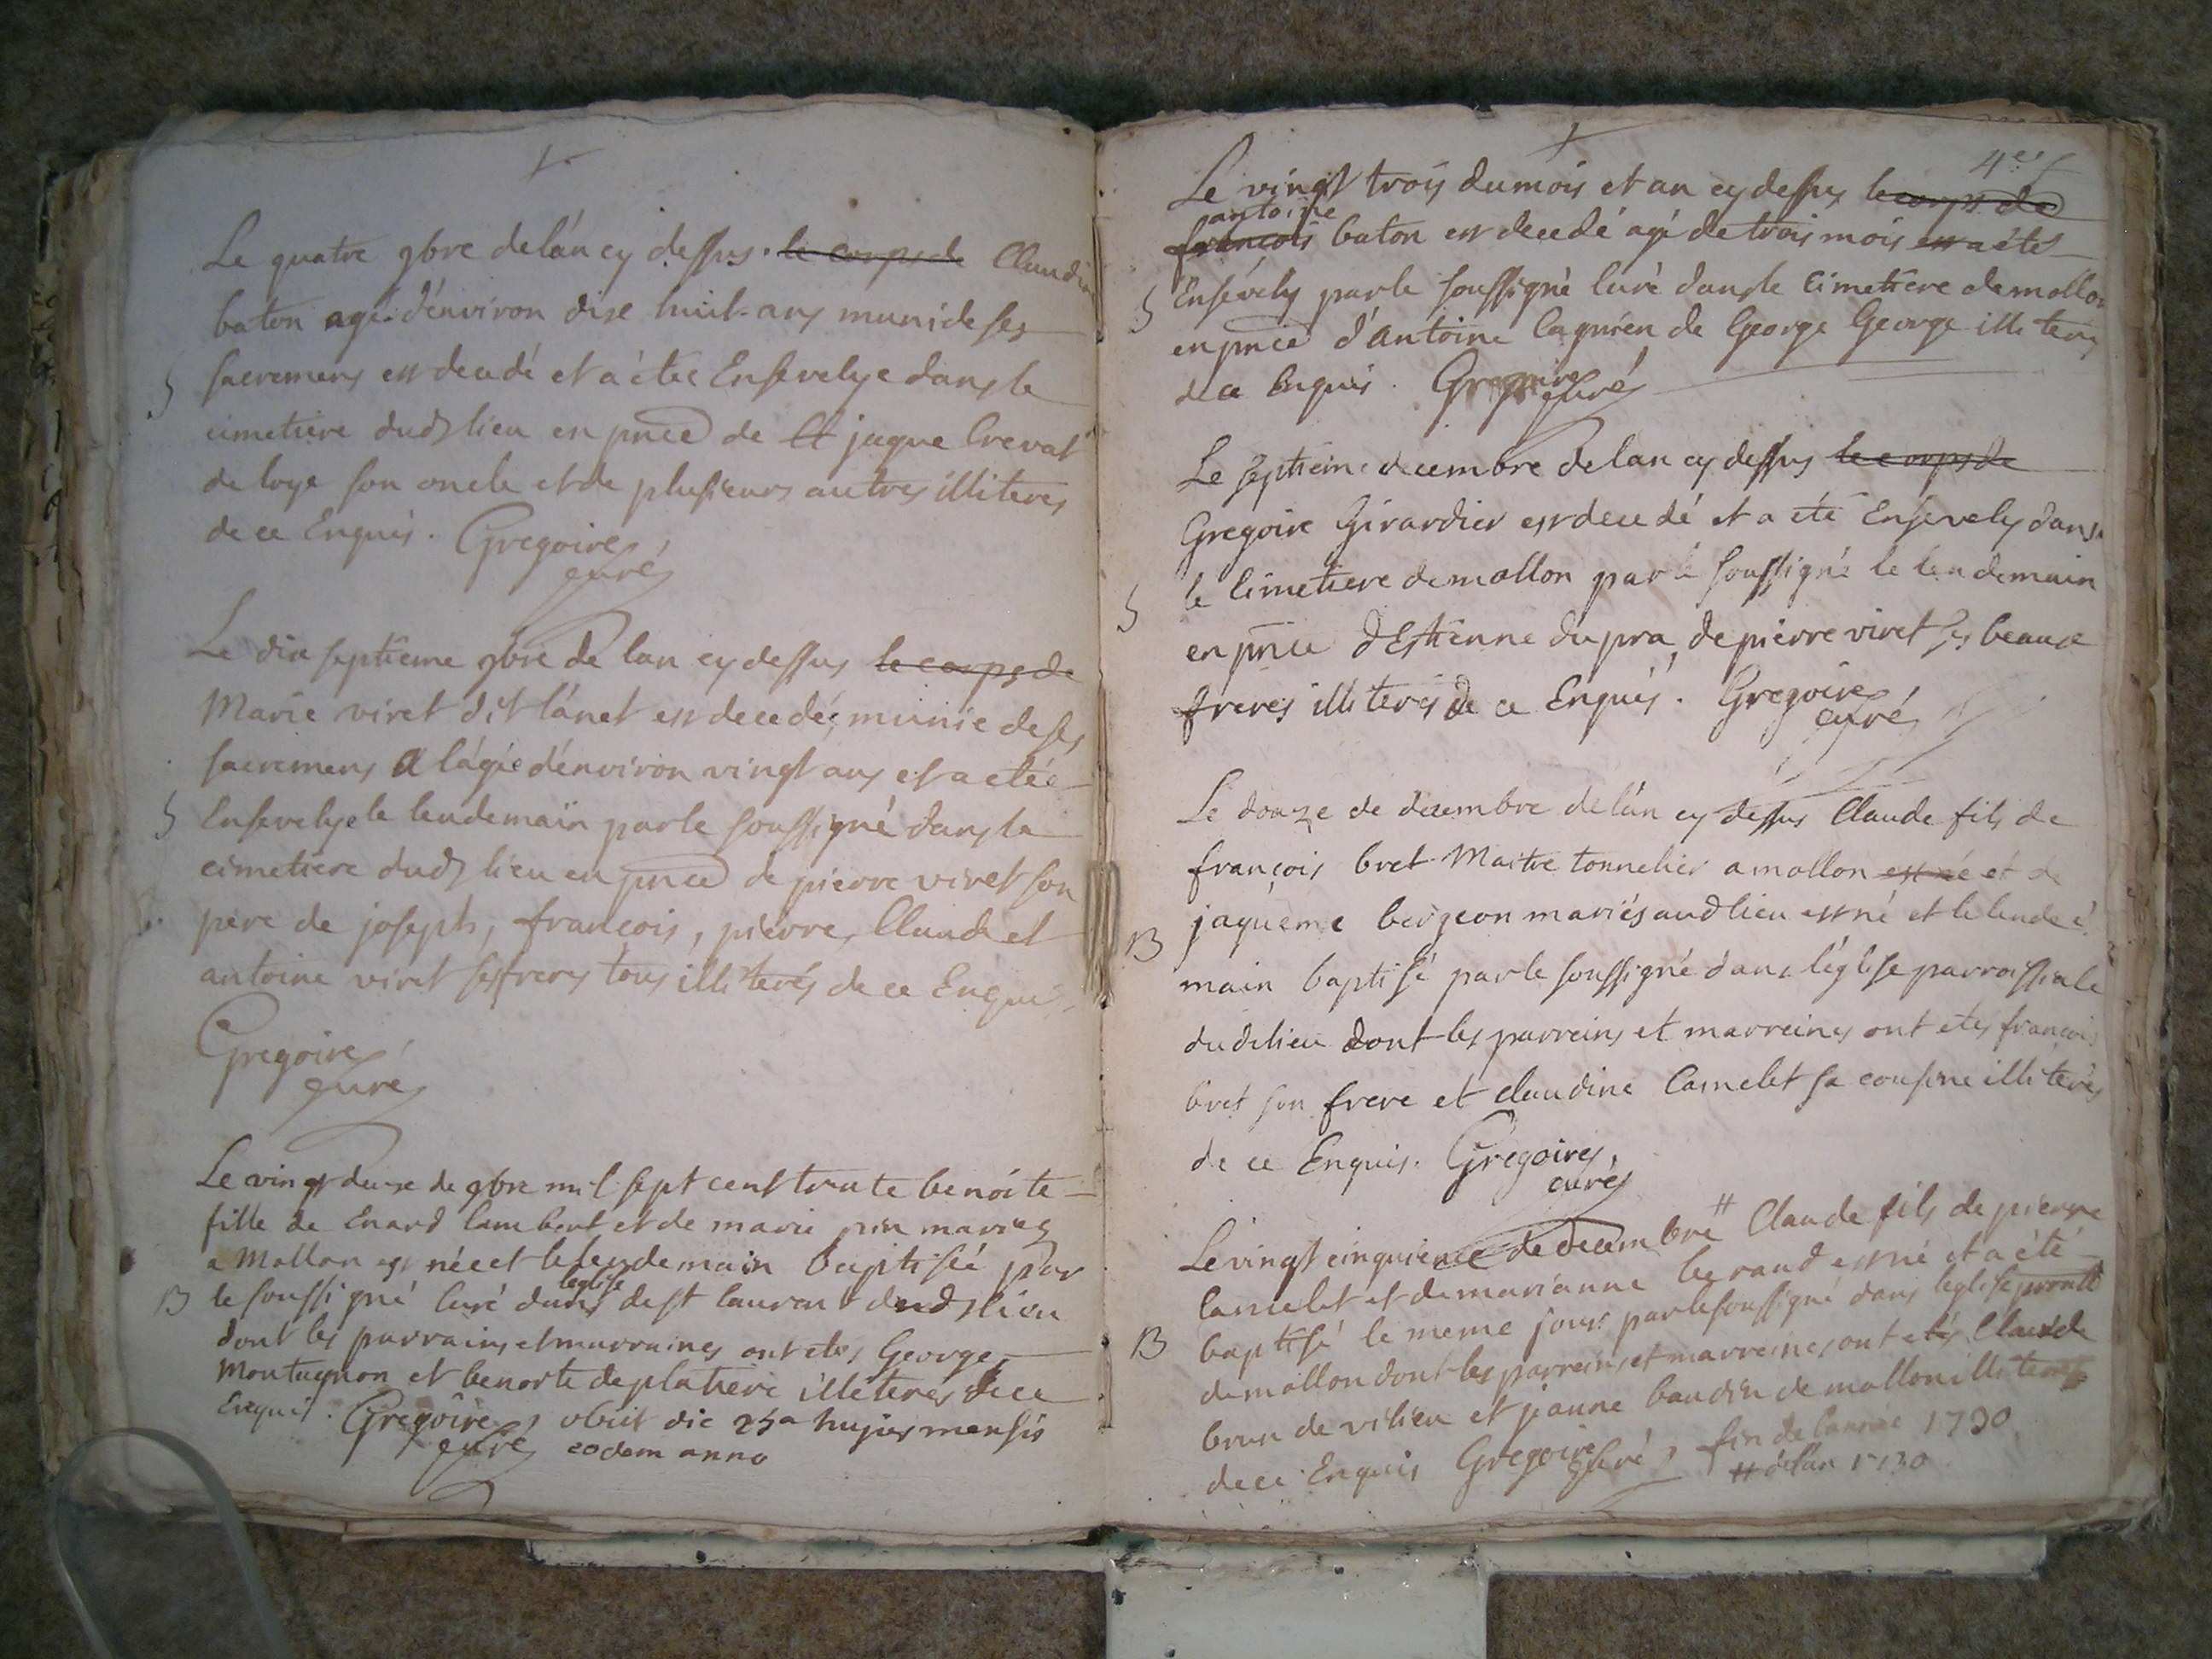 Le quatre 9bre de lán cy dessus le corps de Claudin
baton agé dénviron dixe huit ans muni de ses
S sacremens est decedé et a étée Ensevelye dans le
cimetiere dud lieu en pnce de jaque Crevat
de loye son oncle et de plusieurs autres illiteres
de ce Enquis. Gregoire
curé
Le dix septieme 9bre de lan cy dessus le corps de
Marie viret dit lánet est decedée munie de ses
sacremens a lágée dénviron vingt ans et a étée
S Ensevelye le lendemain par le soussigné dans le
cimetiere dud lieu en pnce de pierre viret son
pere de joseph, françois, pierre, Claude et
antoine viret ses freres tous illiterés de ce Enquis
Gregoire
curé
Le vingt deuxe de 9bre mil sept cent trente benoite
fille de Enard lambert et de marie pin mariés
a Mollon est née et le lendemain baptisée par
léglise
B le soussigné Curé dans de st laurent dud lieu
dont les parrains et marraines ont etes George
Montagnon et benoite de platiere illiteres de ce
Enquis. Gregoire, obiit die 25a hujus mensis
curé eodem anno
4e f
Le vingt trois du mois et an cy dessus le corps de
antoine
françois baton est decedé agé de trois mois est a étés
S Ensévely par le soussigné Curé dans le Cimetiere de mollon
en pnce d'Antoine lagnien de George George illiteres
de ce Enquis. Gregoire
curé
Le septieme decembre de lan cy dessus le corps de
Gregoire Girardier est decedé et a été Ensevely dans
S le Cimetiere de mollon par le soussigné le lendemain
en pnce d'Estienne du pra, de pierre viret ses beaux
freres illiterés de ce Enquis. Gregoire
curé
Le douze de decembre de lán cy dessus Claude fils de
françois bret Maitre tonnelier a mollon est né et de
jaqueme bergeon mariés aud lieu est né et le lende
B main baptisé par le soussigné dans léglise parroissiale
dud lieu dont les parreins et marreines ont etes françois
bret son frere et Claudine Camelet sa cousine illiterés
de ce Enquis. Gregoire,
curé
Le vingt cinquieme de decembre # Claude fils de pierre
Camelet et de marianne beraud est né et a été
B baptisé le meme jour par le soussigné dans léglise
de mollon dont les parreins et marreines ont etés Claude
brun de vilieu et jeanne baudin de mollon illiteres
de ce Enquis Gregoire curé, fin de lannée 1730
# de lán 1730